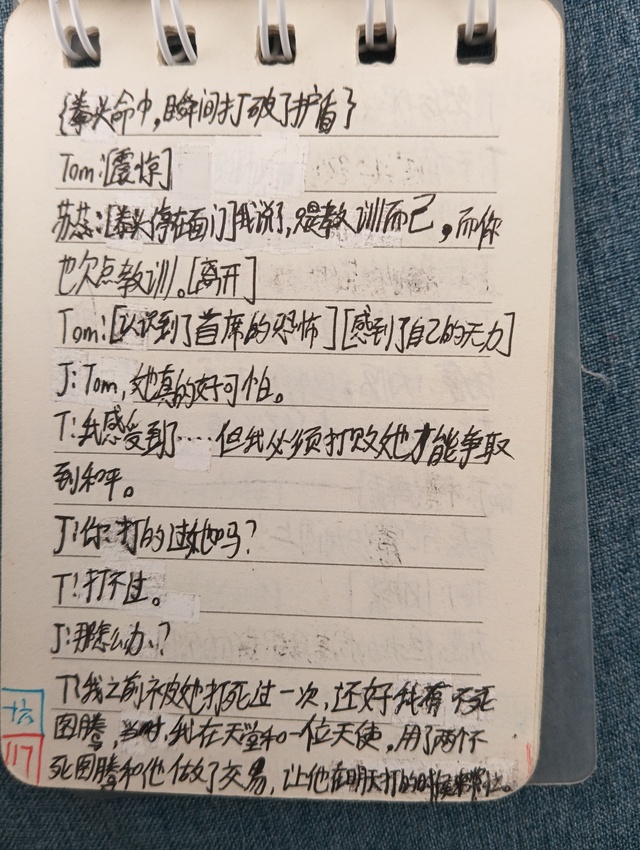 {拳头命中,瞬间打破了护盾}
Tom:[震惊]
苏蕊:[拳头停在面门]我说了,只是教训而已,而你
也欠点教训。[离开]
Tom:[认识到了首席的恐怖][感到了自己的无力]
J:Tom,她真的好可怕。
T:我感受到了……但我必须打败她才能争取
到和平。
J:你打的过她吗?
T:打不过。
J:那怎么办?
T:我之前被她打死过一次,还好我有不死
图腾,当时,我在天堂和一位天使,用了两个不
死图腾和他做了交易,让他在明天打的时候来
十六
117